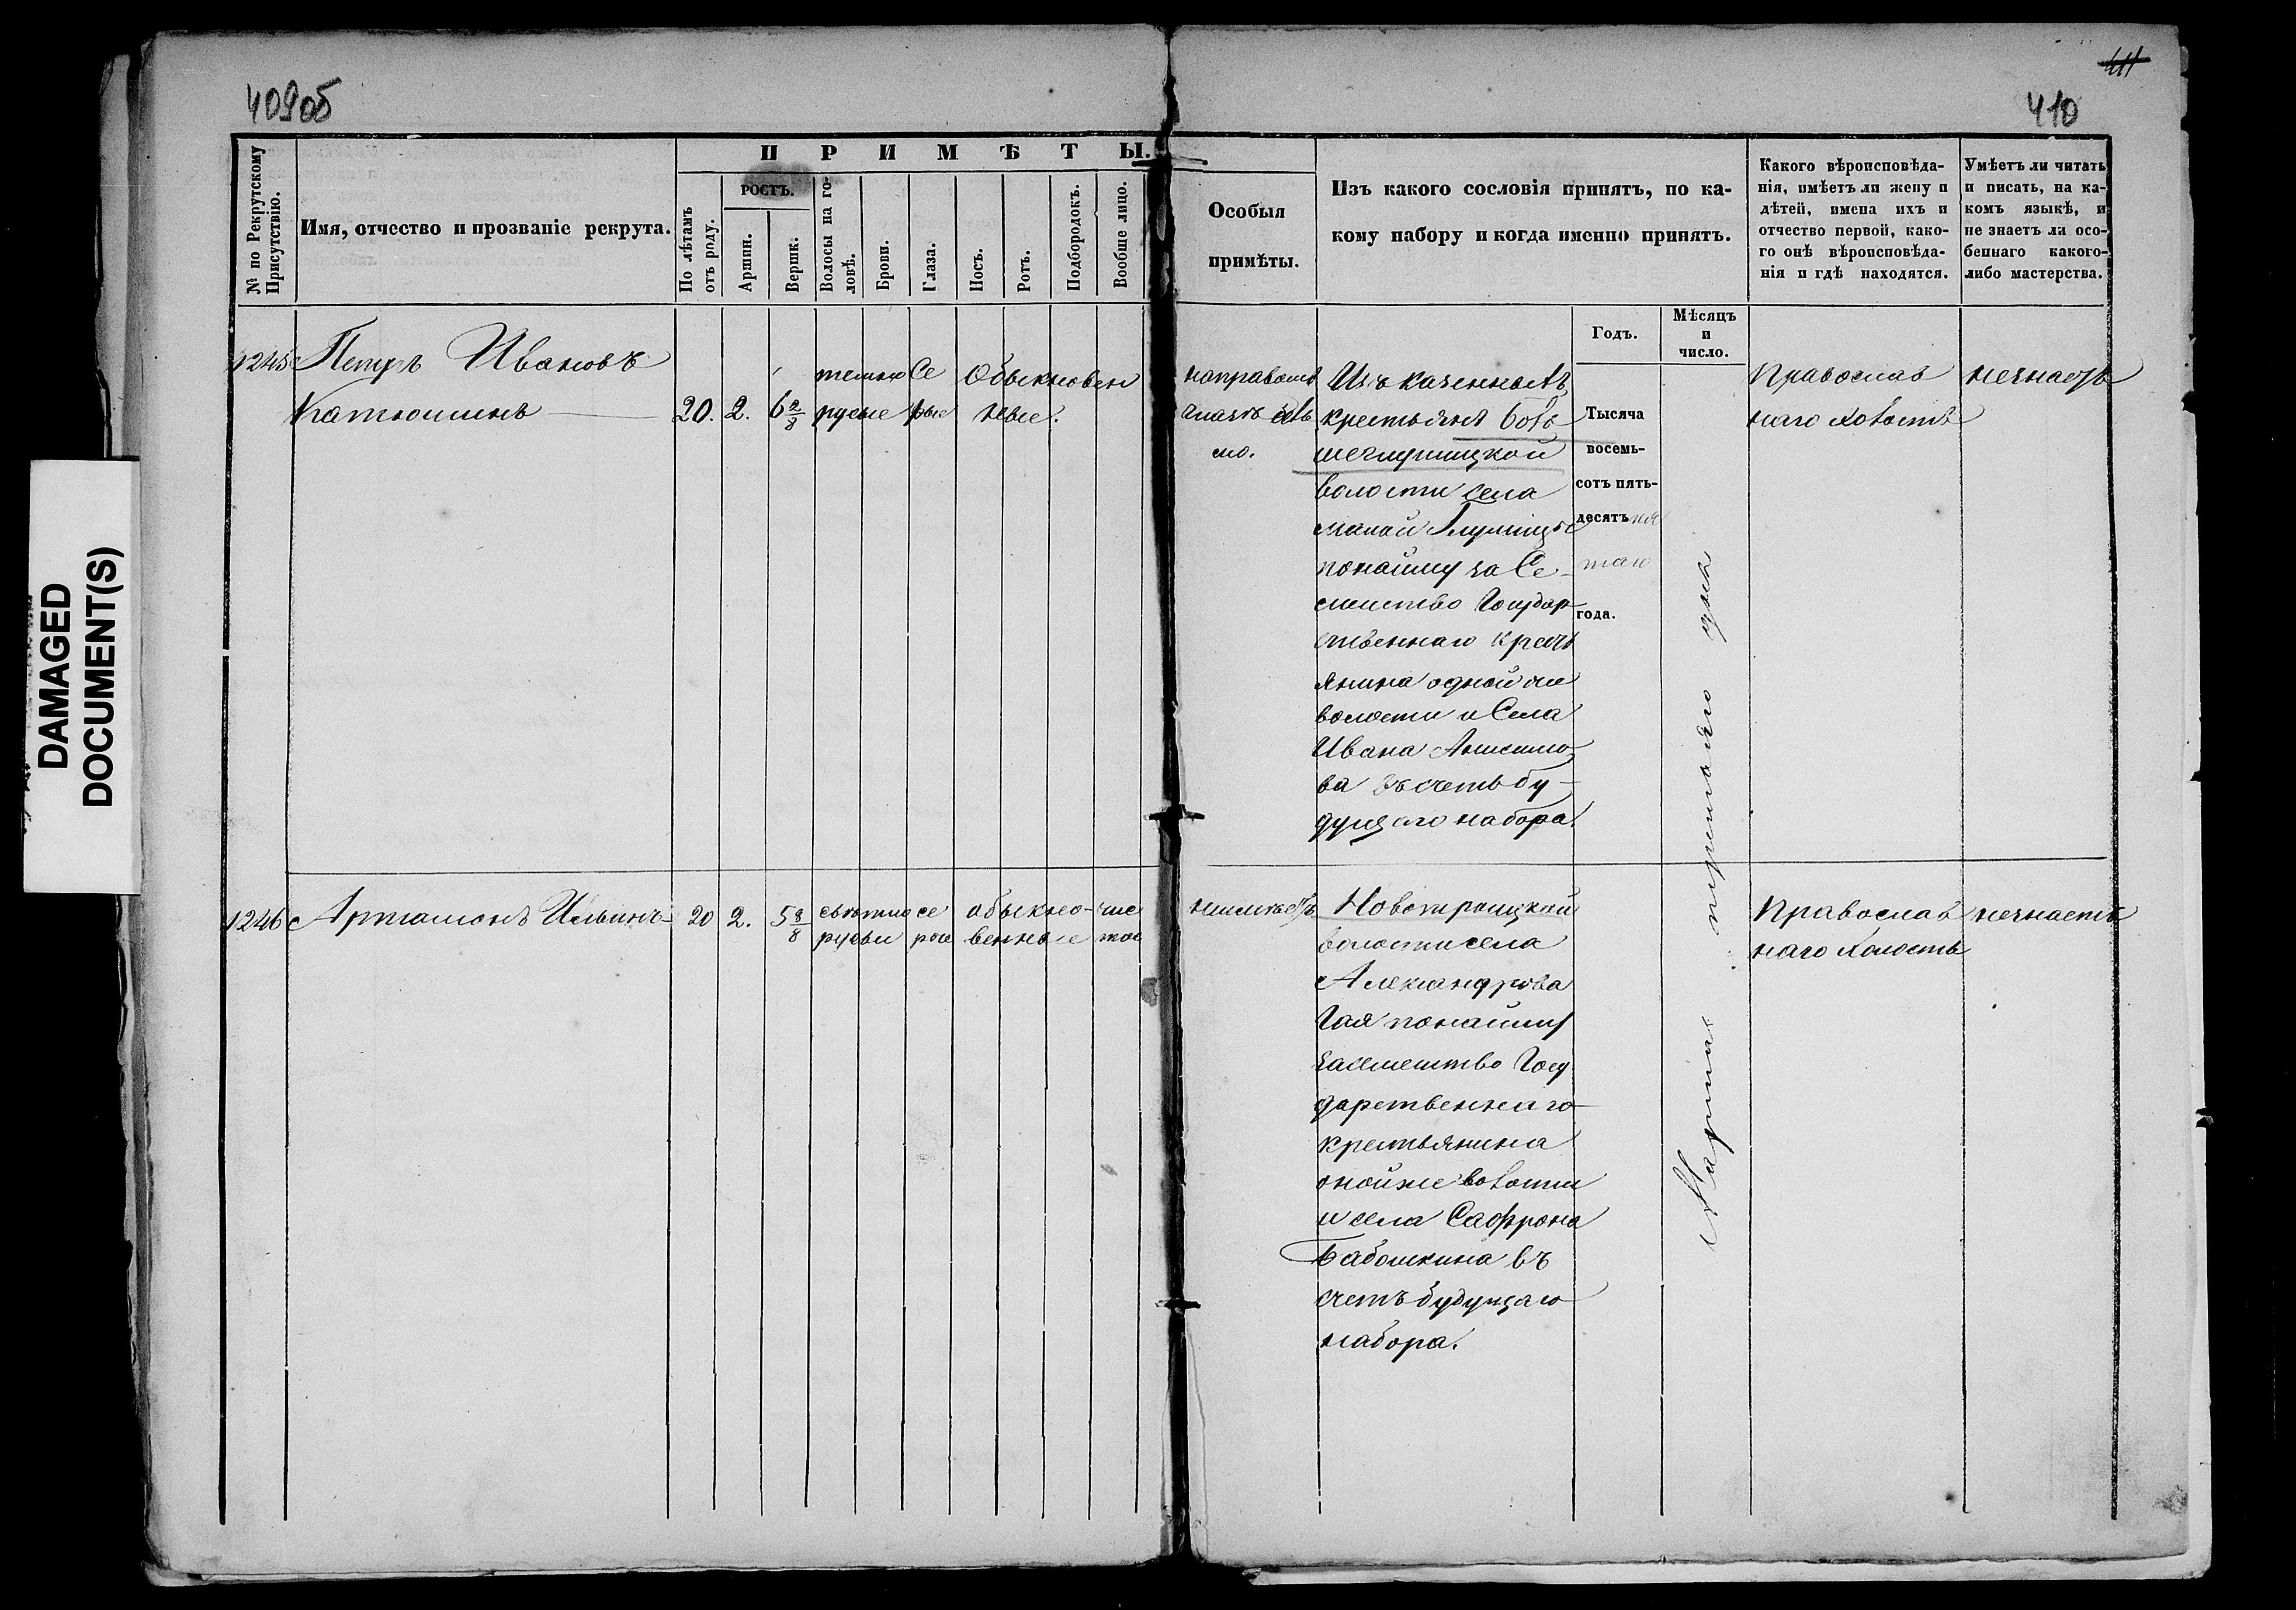 409об
411
410
DAMAGED
DOCUMENT(S)
№ по Рекрутскому
Присутствію.
Имя, отчество и прозваніе рекрута.
ПРИМѢТЫ.
По лѣтамъ
отъ роду.
РОСТЪ.
Аршин.
Вершк.
Волосы на го-
ловѣ.
Брови.
Глаза.
Носъ.
Ротъ.
Подбородокъ.
Вообще лицо.
Особыя
примѣты.
Изъ какого сословія принятъ, по ка-
кому набору и когда именно принятъ.
Годъ.
Мѣсяцъ
и
число.
Какого вѣроисповѣда-
нія, имѣетъ ли жену и
дѣтей, имена ихъ и
отчество первой, како-
го онѣ вѣроисповѣда-
нія и гдѣ находятся.
Умѣетъ ли читать
и писать, на ка-
комъ языкѣ, и
не знаетъ ли осо-
беннаго какого-
либо мастерства.
1245 Петръ Ивановъ
Катюшинъ
20. 2. 6 2/8
темно
русые
Се
рые
Обыкновен
ные.
направомъ
глазѣ
мо.
Изъ казенныхъ
крестьянъ Боль
шеглушицкой
волости села
малой Глушицы
понайму за Се-
мейство Государ
ственнаго кресть
янина одной же
волости и Села
Ивана Анисимо
ва въ счетъ бу-
дущаго набора.
Тысяча
восемь-
сотъ пять-
десятъ пя
таго
года.
Марта тридцатаго дня
Православ
наго холостъ
незнаетъ
1246 Артамонъ Ильинъ
20 2. 5 3/8
свѣтло
русыи
се
рые
обыкно-
венные
чис
тое
неимѣетъ
Новотроицкой
волости села
Александрова
Гая понайму
засемейство Госу
дарственнаго
крестьянина
оной же волости
и села Сафрона
Бабошкина въ
счетъ будущаго
набора.
Православ
наго холостъ
незнаетъ